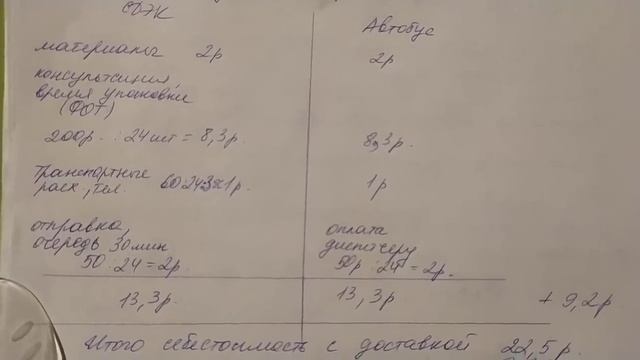 СДЭК
Автобус
материалы 2р
2р
консультация,
время упаковки
(ФОТ)
200р. : 24шт = 8,3р.
8,3р.
транспортные
расх., тел. 60:24:3≈1р.
1р
отправка,
очередь 30мин
50 : 24 = 2р.
оплата
диспетчеру
50р : 24 = 2р.
13,3р.
13,3р
+ 9,2р
Итого себестоимость с доставкой 22,5р.